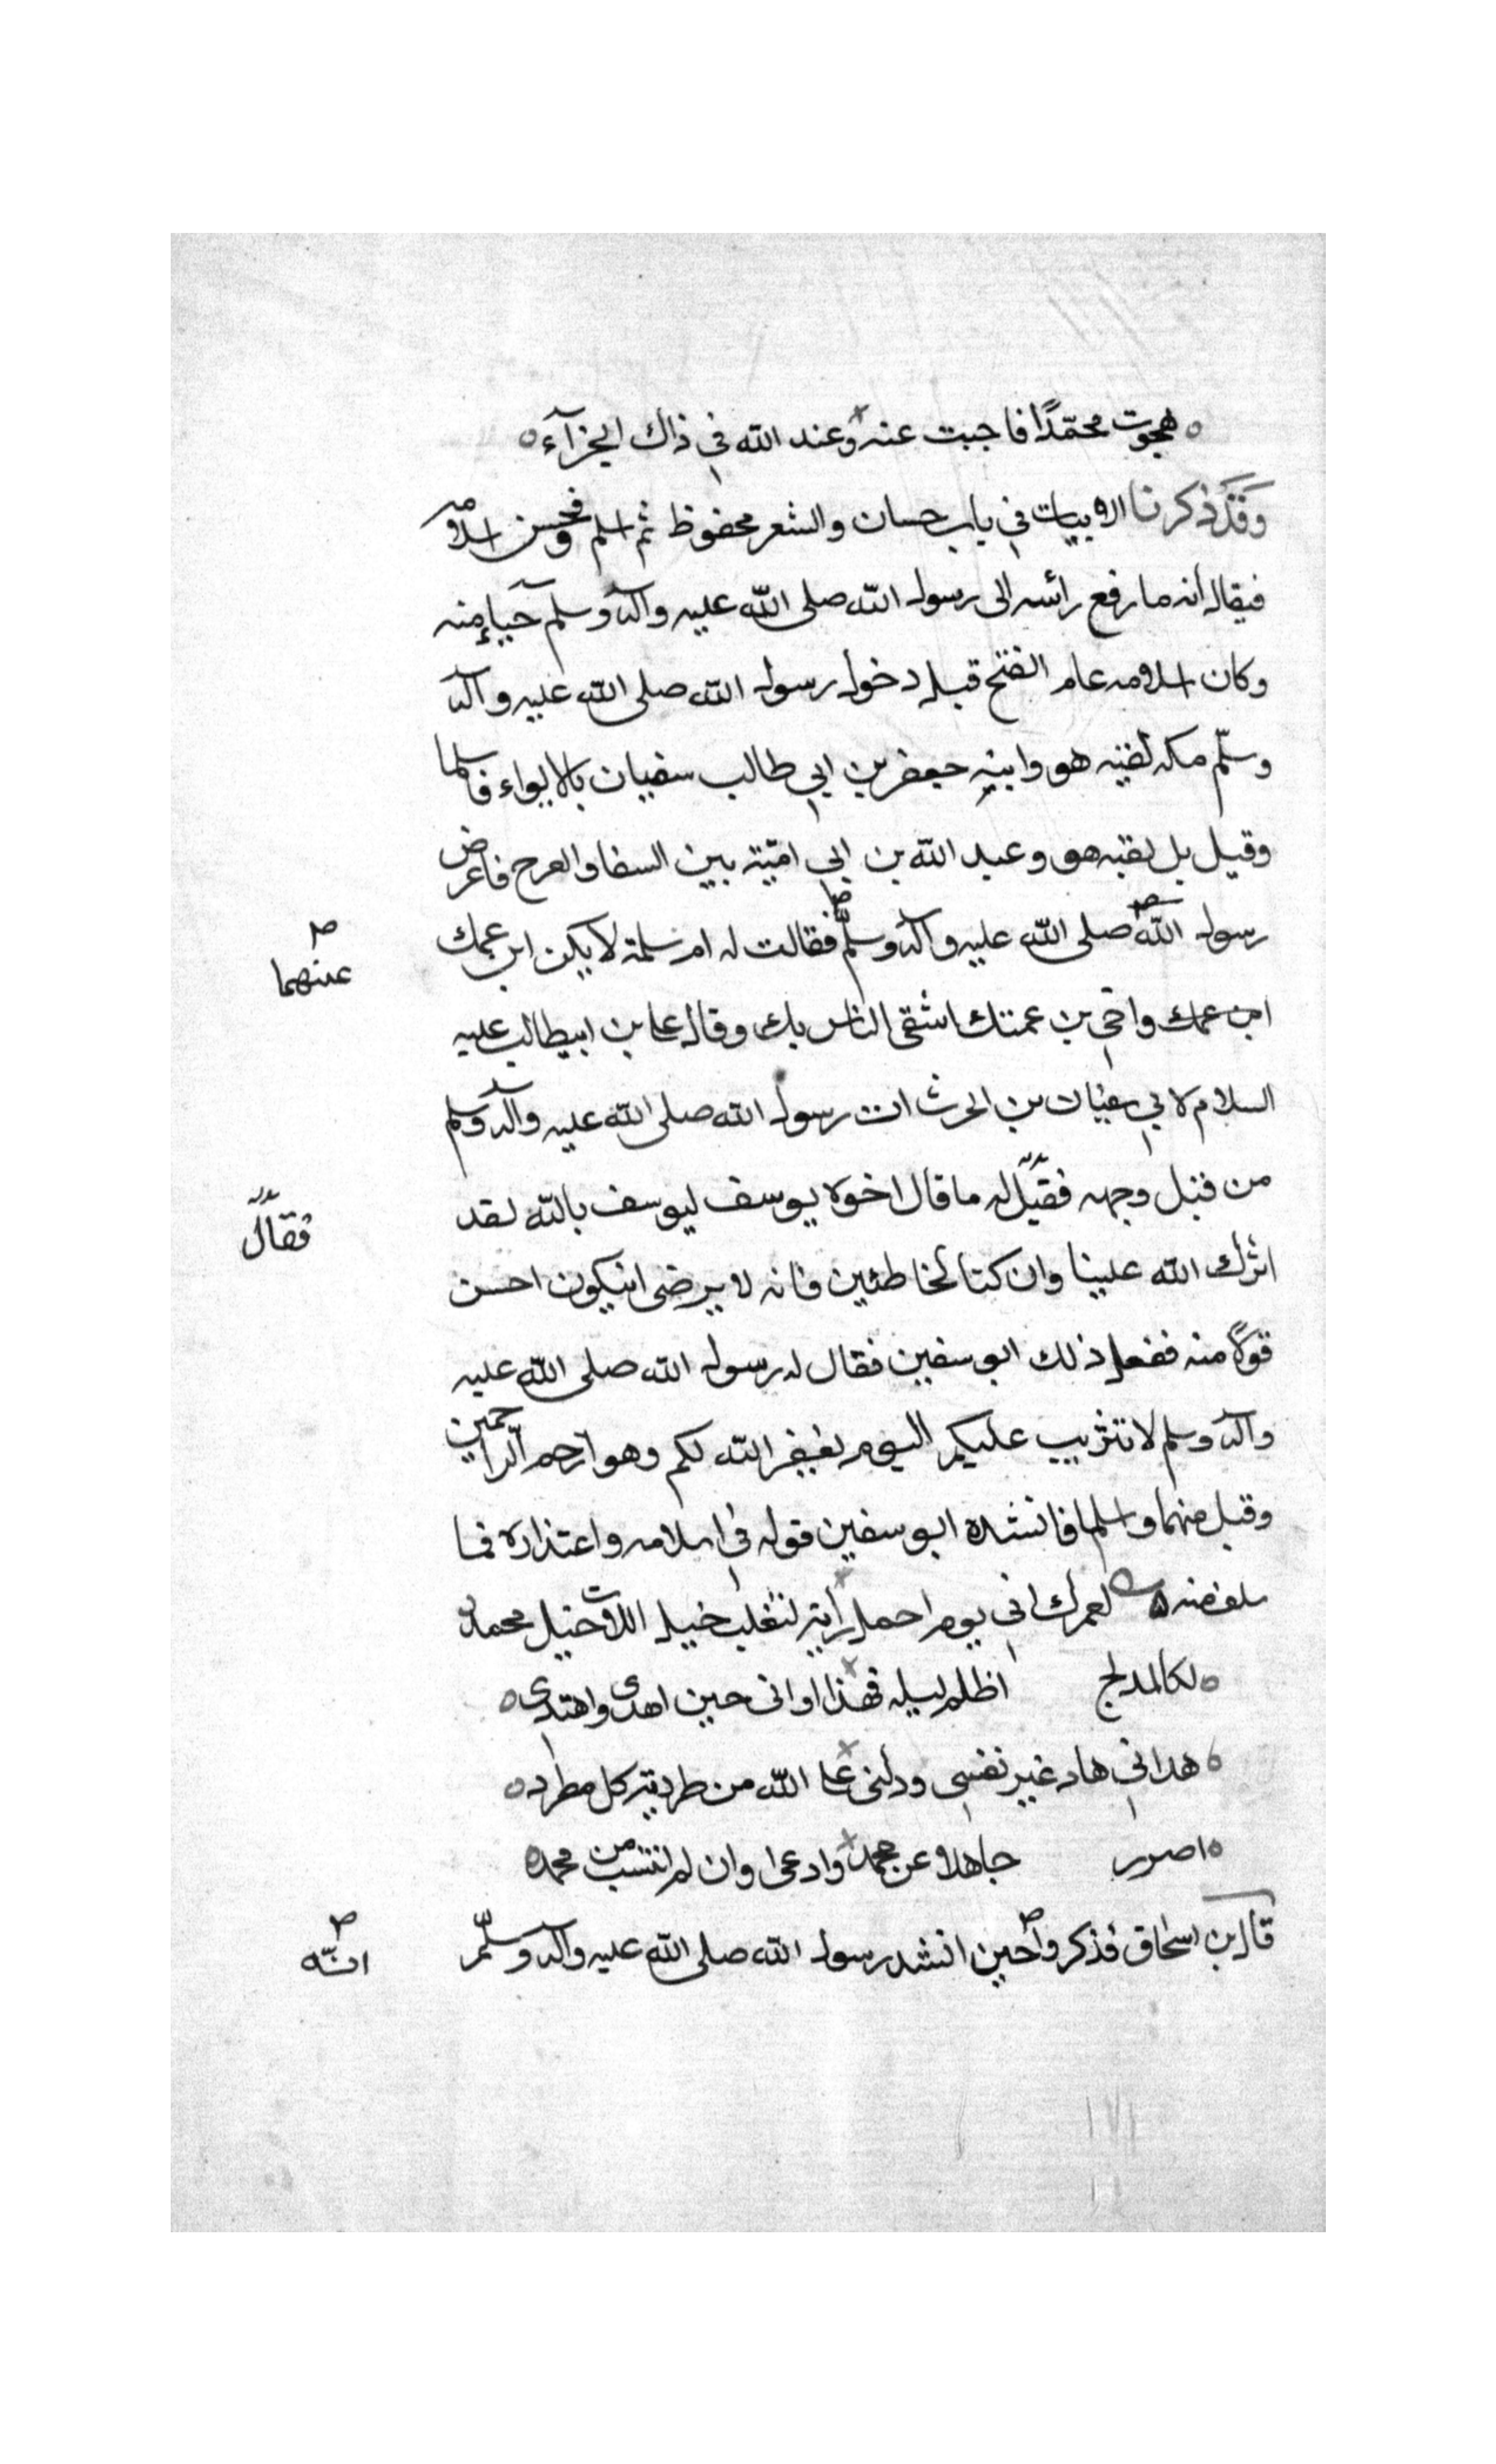 هجوت محمّدًا فاجبت عنه وعند الله في ذاك الجزآء
وقد ذكرنا الابيات في باب حسان والشعر محفوظ ثم اسلم فحسن اسلامه
فيقال أنه ما رفع رأسه الى رسول الله صلى الله عليه وآله وسلم حياء منه
وكان اسلامه عام الفتح قبل دخول رسول الله صلى الله عليه وآله
وسلّم مكه لقيه هو وابنه جعفر بن ابي طالب سفيان بالابواء فاسلما
وقيل بل لقيه هو وعبد الله بن ابي اميّة بين السقا والعرج فاعرض
رسول الله صلى الله عليه وآله وسلّم فقالت له ام سلمة لا يكن ابن عمك
عنهما
ابن عمك واخي بن عمتك اشقى الناس بك وقال علي بن ابيطالب عليه
السلام لابي سفيان بن الحرث ائت رسول الله صلى الله عليه وآله وسلم
من قبل وجهه فقيل له ما قال اخوة يوسف ليوسف بالله لقد
فقال
اثرك الله علينا وان كنا لخاطئين فانه لا يرضى انيكون احسن
قولًا منه ففعل ذلك ابو سفين فقال له رسول الله صلى الله عليه
وآله وسلم لا تثريب عليكم اليوم يغفر الله لكم وهو أرحم الراحمين
وقبل منهما واسلما فانشده ابو سفين قوله في اسلامه واعتذاره فما
سلف منه لعمرك اني يوم احمل رأية لتغلب خيل اللات خيل محمد
لكالمدلج اظلم ليله فهذا اواني حين اهدى واهتدى
هداني هاد غير نفسي ودلني على الله من طريقه كل مطرد
اصور جاهلا عن محمد وادعى وان لم انتسب من محمد
قال بن اسحاق فذكروا حين انشد رسول الله صلى الله عليه وآله وسلّم
انّه